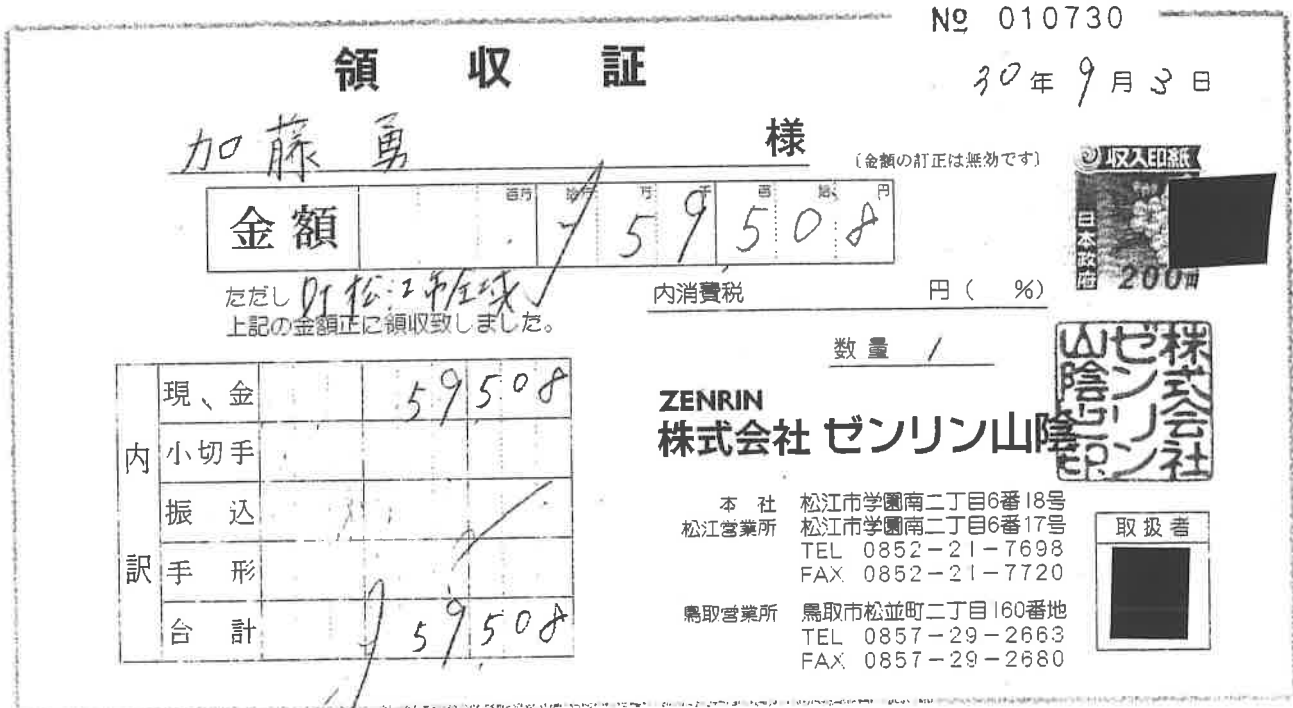 № 010730
領収証
30年9月3日
加藤 勇 様
〔金額の訂正は無効です〕
収入印紙
日本政府
200円
金額 百万 拾万 万 千 百 拾 円
59508
ただし 松江市全域
上記の金額正に領収致しました。
内消費税 円( %)
数量 1
内訳
現、金 59508
小切手
振込
手形
合計 59508
ZENRIN
株式会社 ゼンリン山陰
株式会社ゼンリン山陰之印
本社 松江市学園南二丁目6番18号
松江営業所 松江市学園南二丁目6番17号
TEL 0852-21-7698
FAX 0852-21-7720
鳥取営業所 鳥取市松並町二丁目160番地
TEL 0857-29-2663
FAX 0857-29-2680
取扱者